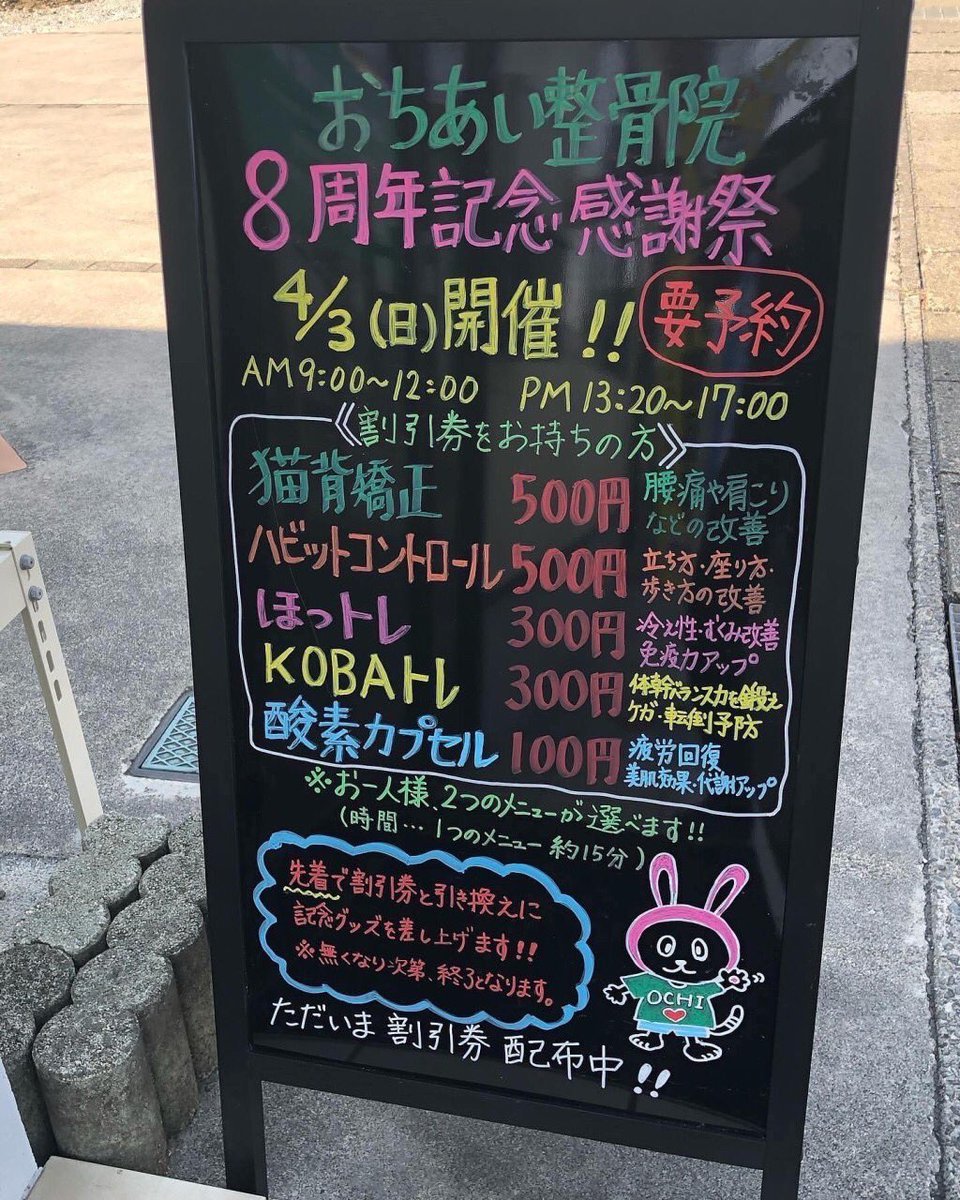 おちあい整骨院
8周年記念感謝祭
4/3(日)開催!! 要予約
AM9:00~12:00 PM13:20~17:00
《割引券をお持ちの方》
猫背矯正 500円 腰痛や肩こり
などの改善
ハビットコントロール 500円 立ち方・座り方・
歩き方の改善
ほっトレ 300円 冷え性・むくみ改善
免疫力アップ
KOBAトレ 300円 体幹バランス力を鍛え
ケガ・転倒予防
酸素カプセル 100円 疲労回復
美肌効果・代謝アップ
※お一人様、2つのメニューが選べます!!
(時間…1つのメニュー約15分)
先着で割引券と引き換えに
記念グッズを差し上げます!!
※無くなり次第、終了となります。
OCHI
ただいま割引券配布中!!